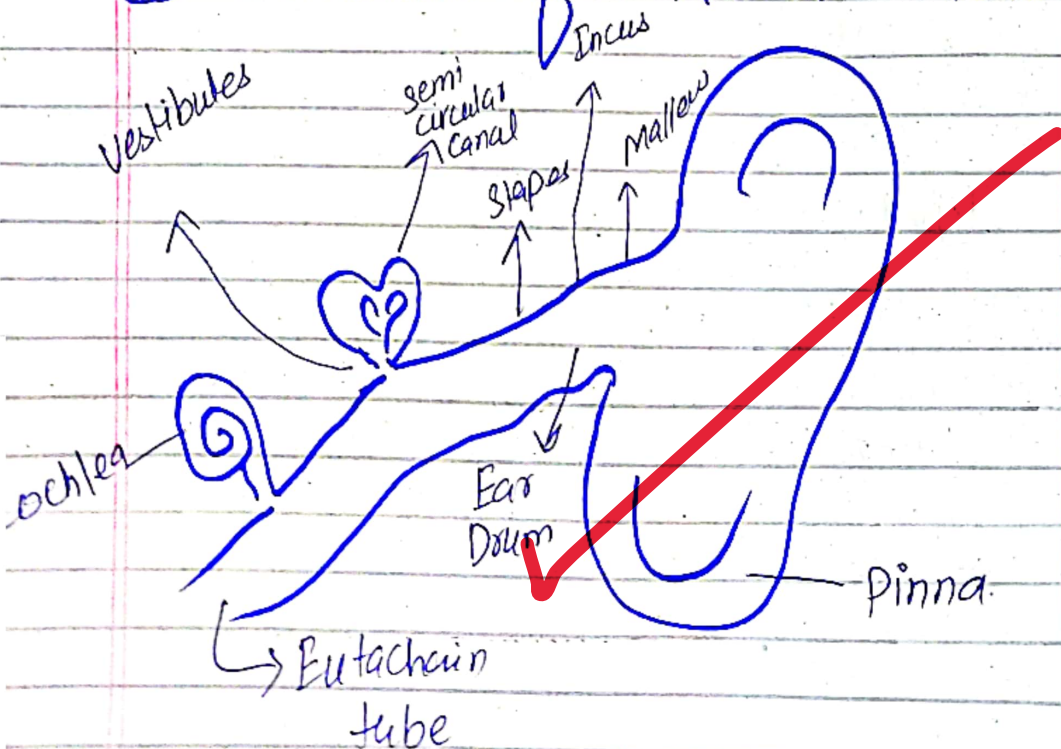 Incus
Vestibules
semi
circular
canal
Stapes
Mallew
ochlea
Ear
Drum
Pinna.
Eutachain
tube